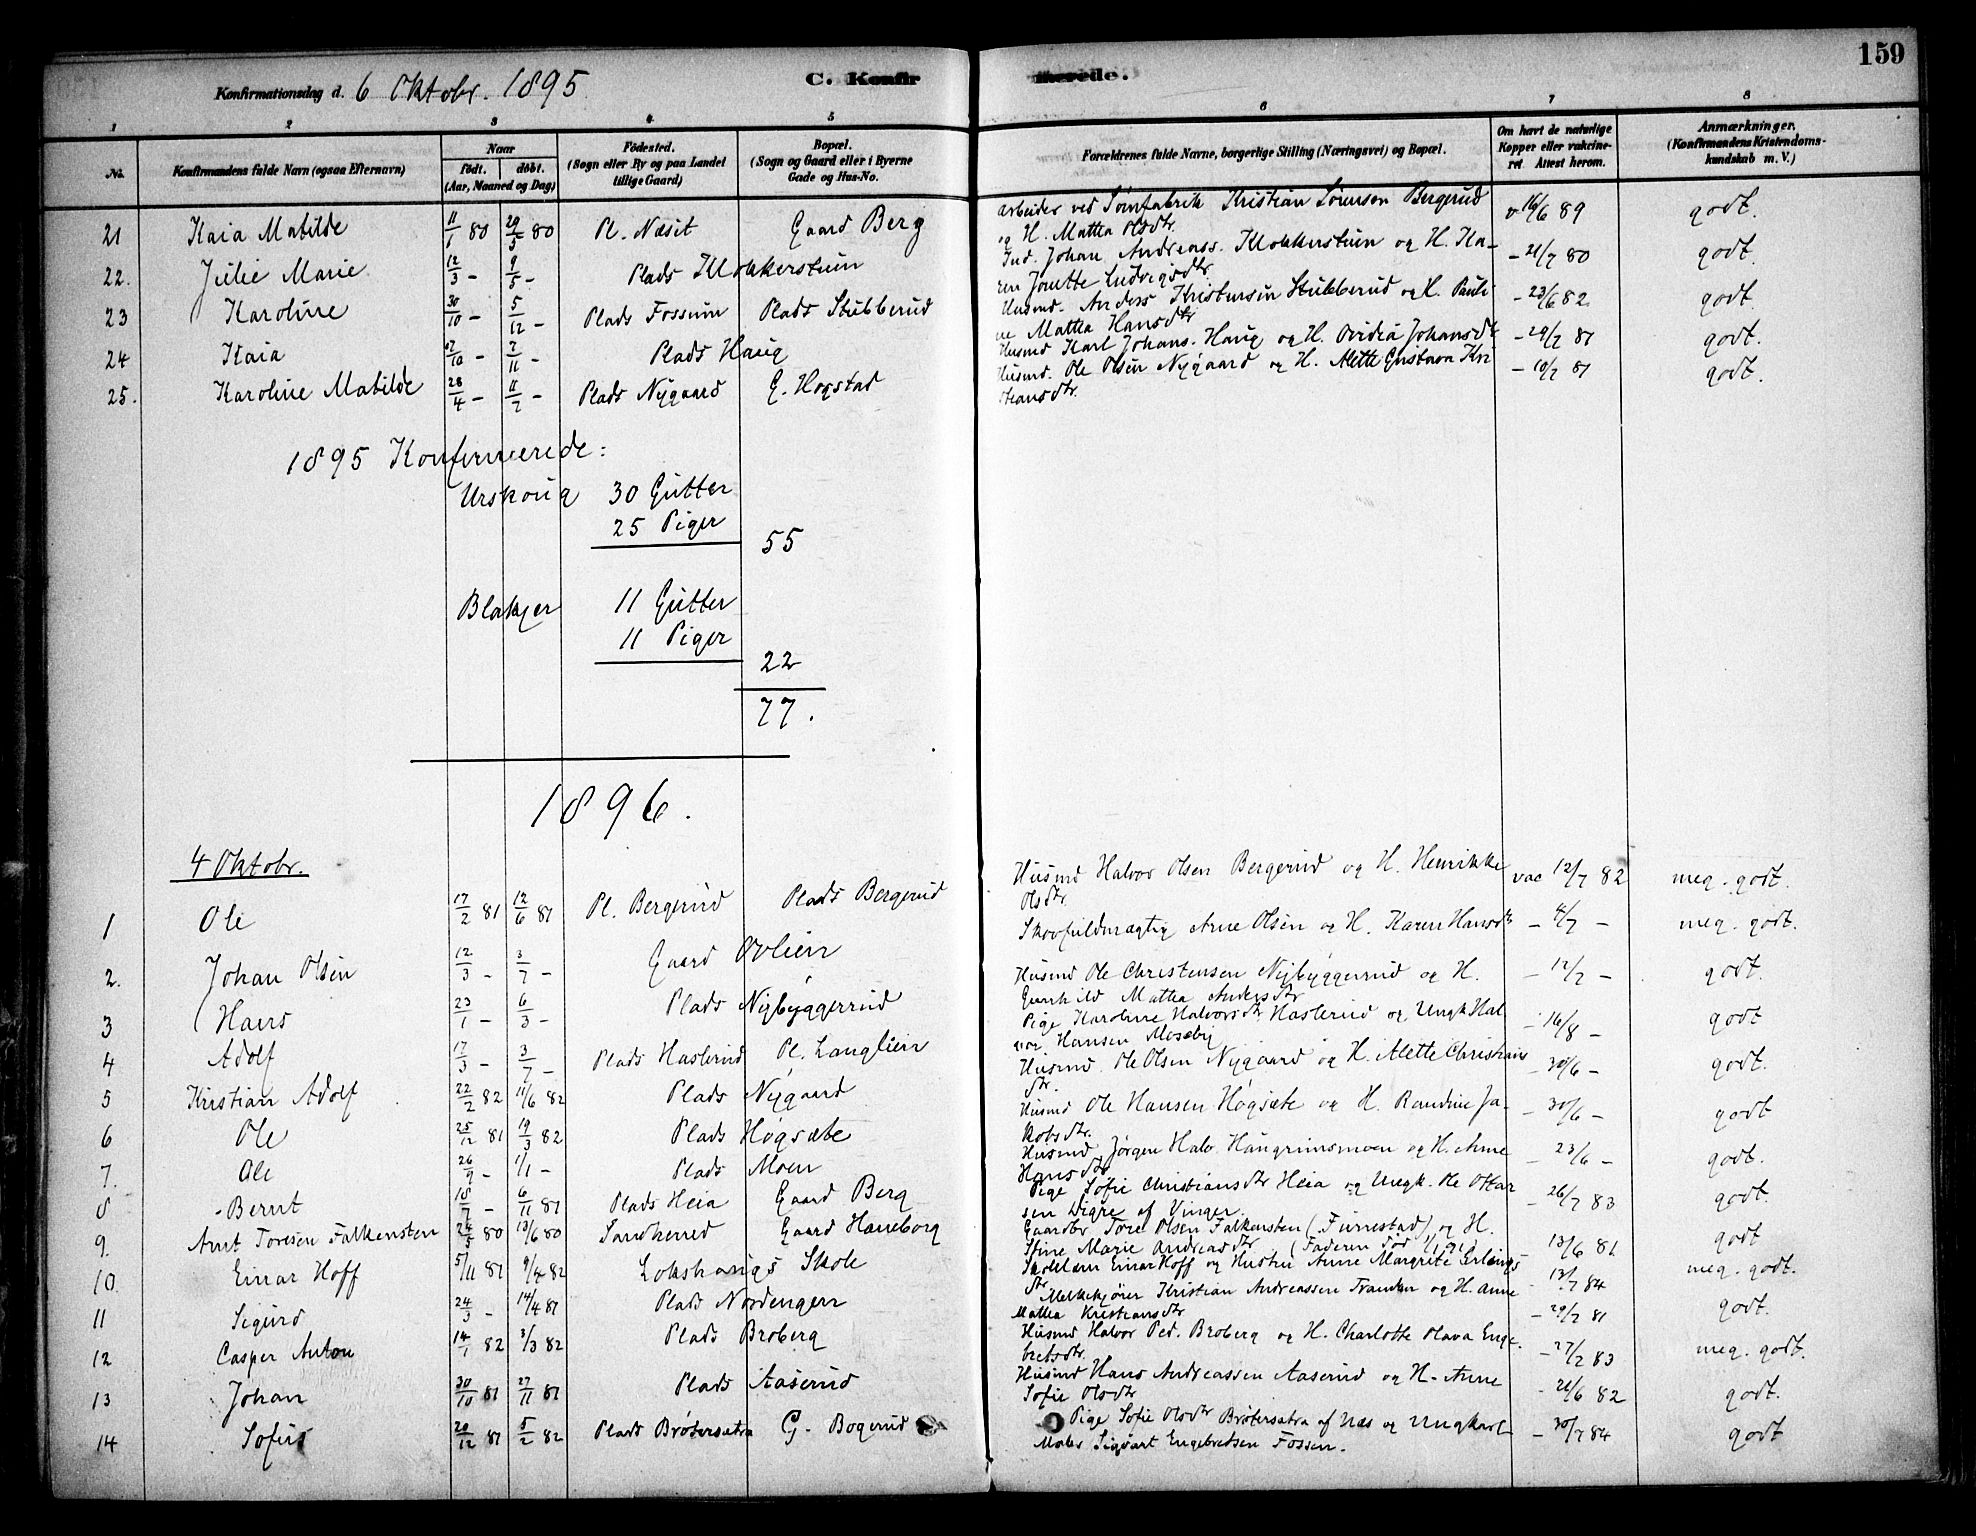 159
Konfirmationsdag d. 6 Oktobr. 1895 C. Konfir merede.
1 2 3 4 5 6 7 8
No. Konfirmandens fulde Navn (ogsaa Efternavn) Naar født. døbt. (Aar, Maaned og Dag) Fødested. (Sogn eller By og paa Landet tillige Gaard) Bopæl. (Sogn og Gaard eller i Byerne Gade og Hus-No. Forældrenes fulde Navne, borgerlige Stilling (Næringsvei) og Bopæl. Om havt de naturlige Kopper eller vakcineret. Attest herom. Anmærkninger. (Konfirmandens Kristendomskundskab m. V.)
21 Kaia Matilde 11/1 80 29/5 80 Pl. Næsit Gaard Berg Arbeider ved Sømfabrik Kristian Sørensen Bergerud v 16/6 89 godt.
og H. Mathea Olsdtr
22. Julie Marie 12/3 - 9/5 - Plads Klokkerstuen Ind. Johan Andreass. Klokkerstuen og H. Ka- - 21/7 80 godt.
ren Jonette Ludvigsdtr.
23 Karoline 30/10 - 5/12 - Plads Fossum Plads Stubberud Husmd. Anders Kristensen Stubberud og H. Pauli - 23/6 82 godt.
ne Mathea Hansdtr
24 Kaia 7/10 - 7/11 - Plads Haug Husmd Karl Johans. Haug og H. Ovidia Johansdtr - 29/7 81 godt.
25. Karoline Matilde 28/4 - 11/7 - Plads Nygaard G. Hogstad Husmd. Ole Olsen Nygaard og H. Alette Gustava Kri - 10/7 81 godt.
stiansdtr.
1895 Konfirmerede:
Urskoug 30 Gutter
25 Piger
55
Blakjer 11 Gutter
11 Piger
22
77.
1896.
4 Oktobr.
1 Ole 17/2 81 12/6 81 Pl. Bergerud Plads Bergerud Husmd Halvor Olsen Bergerud og H. Henrikke vac 12/7 82 meg. godt.
Olsdtr.
2. Johan Olsen 12/3 - 3/7 - Gaard Ovlien Skovfuldmægtig Arne Olsen og H. Karen Hansdtr - 4/7 - meg. godt.
3 Hans 23/1 - 6/3 - Plads Nybyggerrud Husmd Ole Christensen Nybyggerrud og H. - 12/7 - godt.
Gunhild Mathea Andersdtr
4 Adolf 17/3 - 3/7 - Plads Haslerud Pl. Langlien Pige Karoline Halvorsdtr Haslerud og Ungk Hal - 16/8 - godt
vor Hansen Moseby
5 Kristian Adolf 22/2 82 11/6 82 Plads Nygaard Husmd. Ole Olsen Nygaard og H. Alette Christians - 30/6 - godt.
dtr.
6 Ole 25/12 81 19/3 82 Plads Høgsæte Husmd Ole Hansen Høgsæte og H. Randine Ja- - 30/6 - godt
kobsdtr.
7. Ole 26/9 - 1/1 - Plads Moen Husmd. Jørgen Halv. Haugrimsmoen og H. Anne - 23/6 - godt.
Hansdtr
8 Bernt 18/7 - 6/11 81 Plads Heia Gaard Berg Pige Sofie Christiansdtr Heia og Ungk. Ole Ottar - 26/7 83 godt.
sen Digre af Vinger.
9. Arnt Toresen Falkensten 24/5 80 13/6 80 Sandherred Gaard Haneborg Gaardbr Tore Olsen Falkensten (Furnestad) og H. - 13/6 81 godt
Stine Marie Andreasdtr (Faderen død
10. Einar Hoff 5/11 81 9/4 82 Lokshaugs Skole Skolelæ Einar Hoff og Hustru Anne Margrete Erlings - 13/7 84 meg. godt.
dtr
11 Sigurd 24/3 - 14/4 81 Plads Nordengen Melkekjører Kristian Andreassen og H. Anne - 29/7 81 godt.
Mathea Kristiansdtr
12 Casper Anton 14/1 82 3/3 82 Plads Broberg Husmd Halvor Ped. Broberg og H. Charlotte Olava Enge - 27/7 83 meg. godt.
bretsdtr.
13 Johan 30/10 81 27/11 81 Plads Aaserud Husmd Hans Andreassen Aaserud og H. Anne - 21/6 82 godt.
Sofie Olsdtr
14 Sofus 20/12 81 5/2 82 Plads Brøtersætra G. Bogerud Pige Sofie Olsdtr Brøtersætra af Næs og Ungkarl - 30/7 84 godt
Maler Sigvart Engebretsen Fossen.